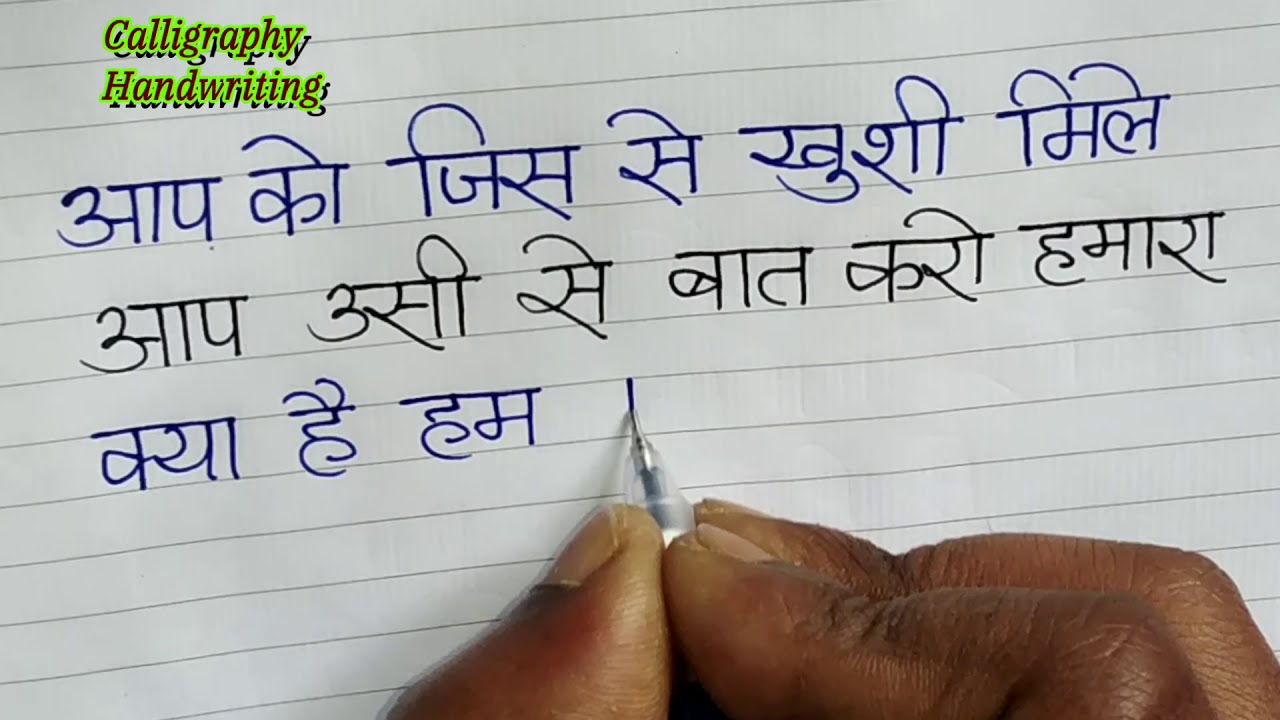 Calligraphy
Handwriting
आप को जिस से खुशी मिले
आप उसी से बात करो हमारा
क्या है हम